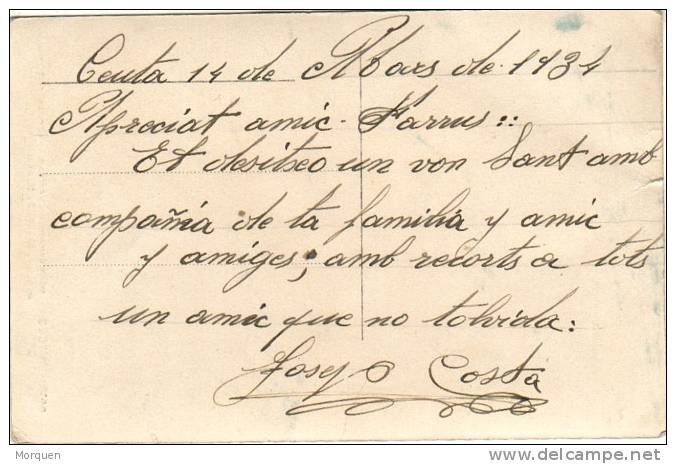 Ceuta 14 de Mars de 1934
Apreciat amic Farrus::
Et desitseo un von Sant amb
compañia de ta familia y amic
y amiges; amb recorts a tots
un amic que no tolvida:
Josep Costa
Morquen